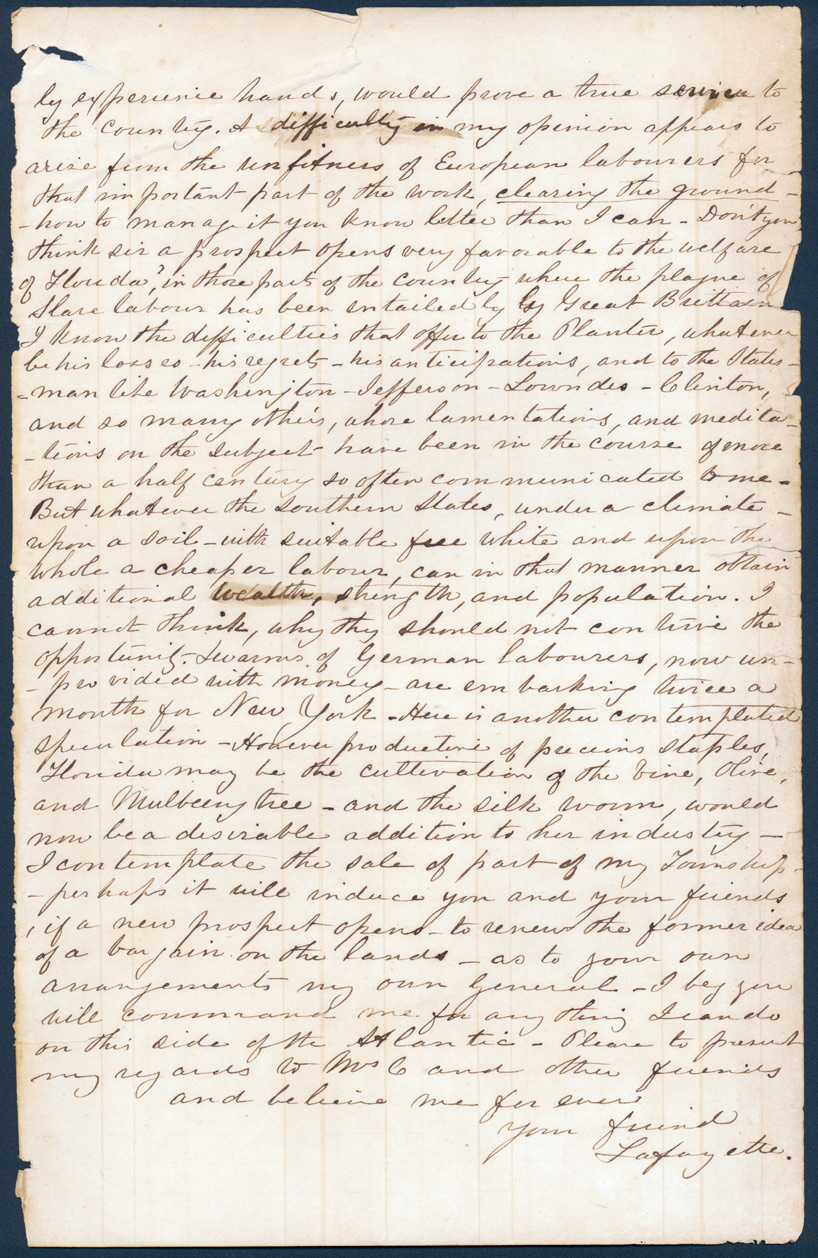 ly experience hands, would prove a true service to
the country. A difficulty in my opinion appears to
arise from the unfitness of European labourers for
that important part of the work, clearing the ground -
- how to manage it you know better than I can - Don't you
think sir a prospect opens very favorable to the welfare
of Florida? in those parts of the country where the plague of
Slave labour has been entailed by by Great Brittain
I know the difficulties that offer to the Planter, whatever
be his losses - his regrets - his anticipations, and to the States-
-man like Washington - Jefferson - Lowndes - Clinton,
and so many others, whose lamentations, and medita-
-tions on the subject have been in the course of more
than a half century so often communicated to me -
But whatever the southern States, under a climate -
upon a soil - with suitable free white and upon the
whole a cheaper labour, can in that manner obtain
additional wealth, strength, and population. I
cannot think, why they should not contrive the
opportunity. Swarms of German labourers, now un-
-provided with money - are embarking twice a
month for New York - Here is another contemplated
speculation - However productive of precious staples,
Florida may be the cultivation of the Vine, Olive,
and Mulberry tree - and the silk worm, would
now be a desirable addition to her industry -
I contemplate the sale of part of my Township -
- perhaps it will induce you and your friends
, if a new prospect opens - to renew the former idea
of a bargain on the lands - as to your own
arrangements my own General - I beg you
will command me for any thing I can do
on this side of the Atlantic - Please to present
my regards to Mrs C and other friends
and believe me for ever
Your friend
Lafayette.